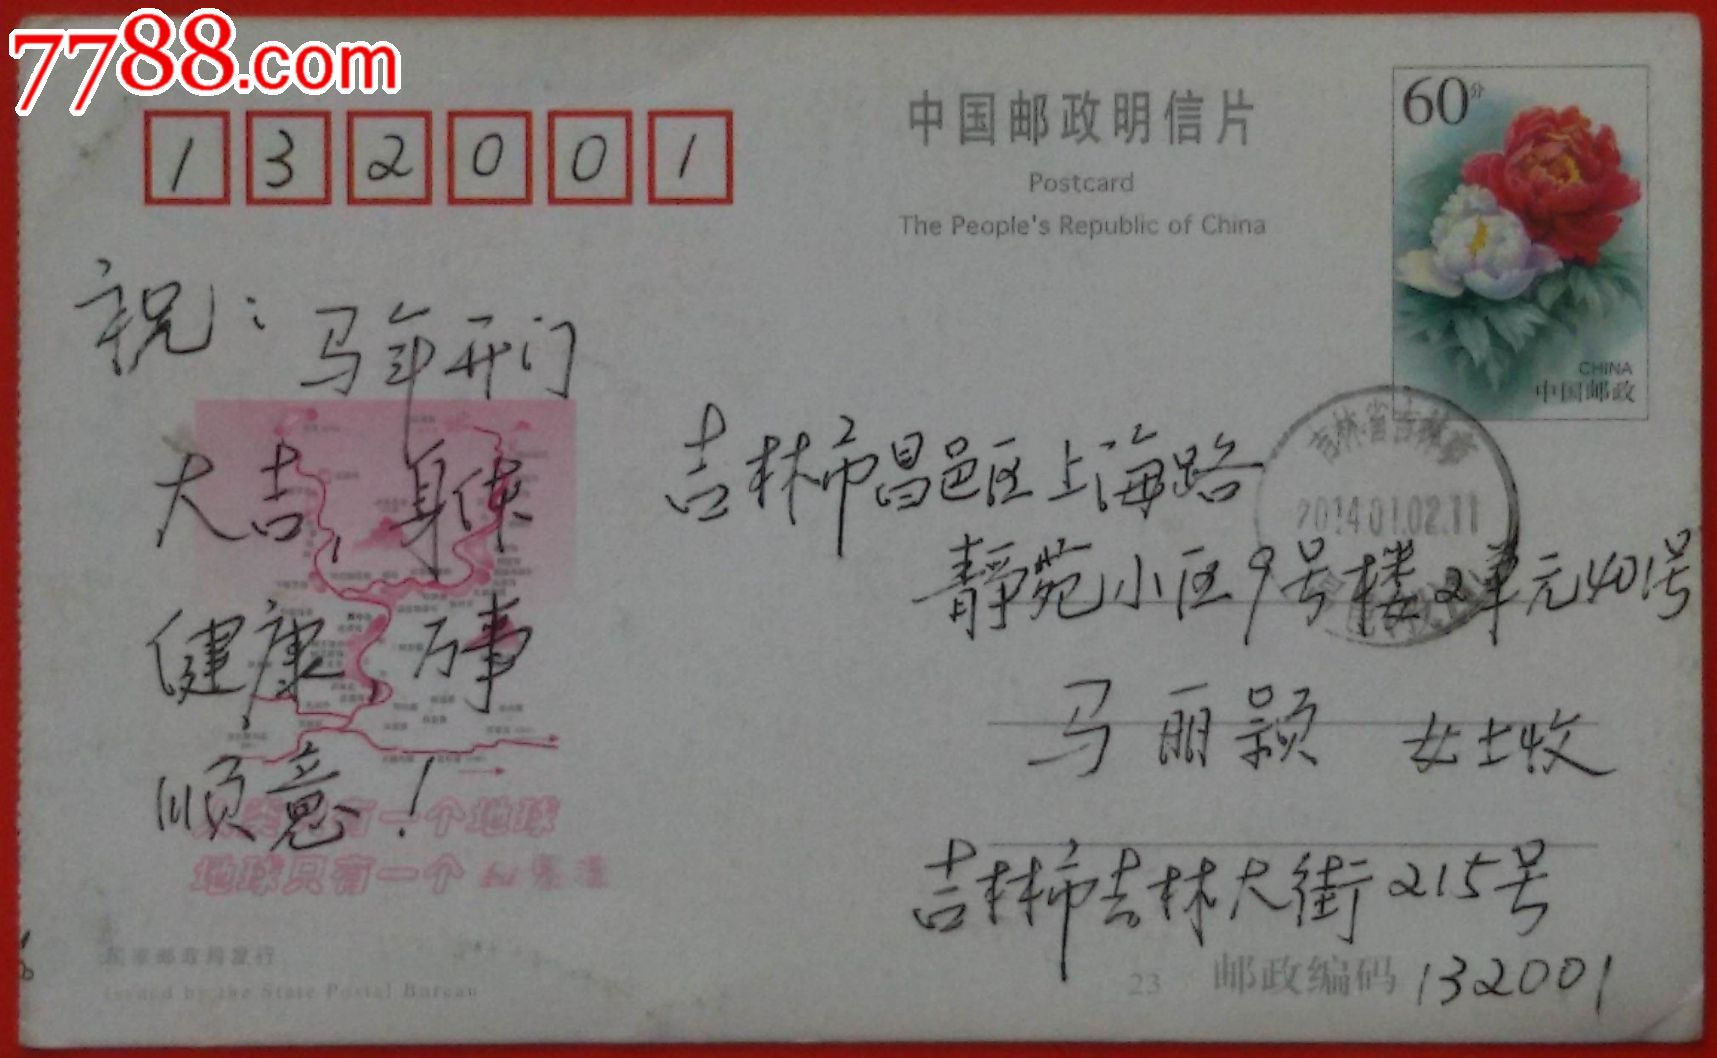 7788.com
132001
中国邮政明信片
Postcard
The People's Republic of China
60分
CHINA
中国邮政
祝：马年开门
大吉，身体
健康，万事
顺意！
吉林省吉林市
2014.01.02.11
吉林市昌邑区上海路
静苑小区9号楼2单元401号
马丽颖 女士收
吉林市吉林大街215号
邮政编码 132001
23
只有一个地球
地球只有一个
国家邮政局发行
Issued by the State Postal Bureau